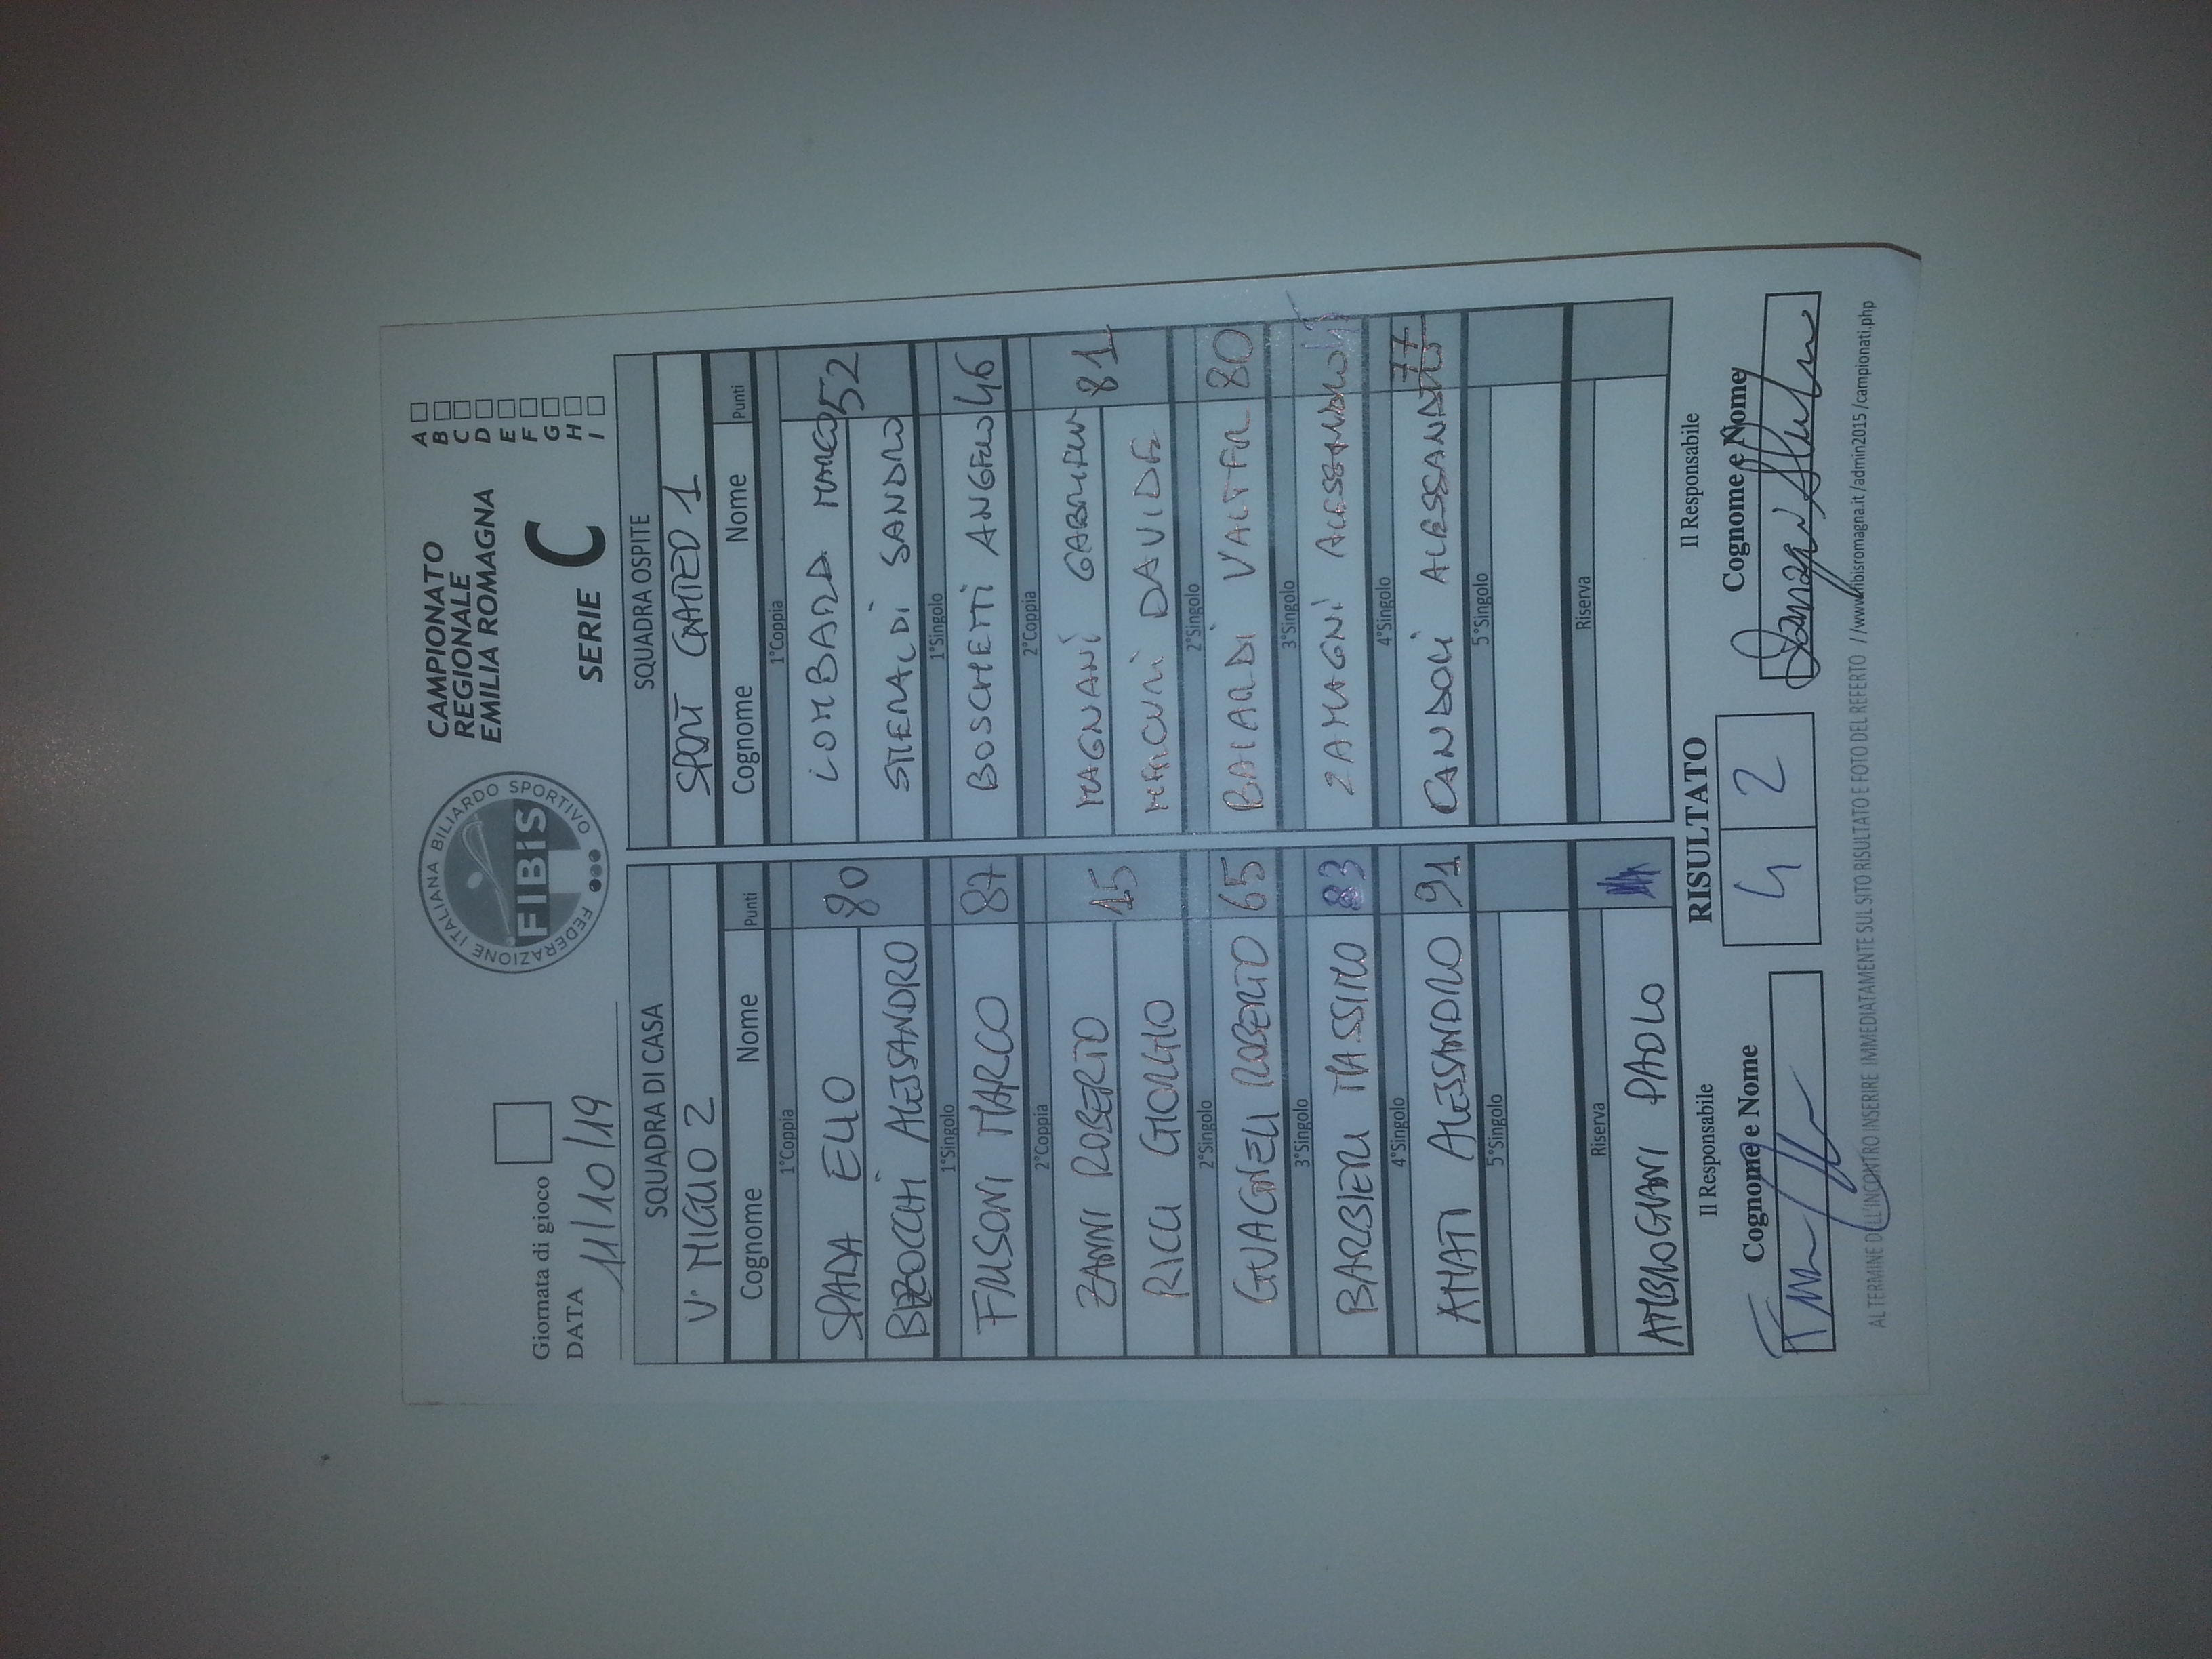 Giornata di gioco
DATA 11/10/19
FEDERAZIONE ITALIANA BILIARDO SPORTIVO
FIBiS
CAMPIONATO
REGIONALE
EMILIA ROMAGNA
SERIE C
A
B
C
D
E
F
G
H
I
SQUADRA DI CASA SQUADRA OSPITE
V. MIGLIO 2 SPORT GATTEO 1
Cognome Nome Punti Cognome Nome Punti
1°Coppia 1°Coppia
SPADA ELIO 80 LOMBARDI MARCO 52
BIZOCCHI ALESSANDRO SANDRO
1°Singolo 1°Singolo
FRISONI MARCO 87 BOSCHETTI ANGELO 46
2°Coppia 2°Coppia
ZANNI ROBERTO 15 MAGNANI GABRIELE 81
RICCI GIORGIO MERCURI DAVIDE
2°Singolo 2°Singolo
GUAGNELI ROBERTO 65 BAIARDI VALTER 80
3°Singolo 3°Singolo
BARBIERI MASSIMO 83 ZAMAGNI ALESSANDRO
4°Singolo 4°Singolo
AMATI ALESSANDRO 91 CANDOLI ALESSANDRO 77
5°Singolo 5°Singolo
Riserva Riserva
AMBROGIANI PAOLO
Il Responsabile RISULTATO Il Responsabile
Cognome e Nome 4 2 Cognome e Nome
AL TERMINE DELL'INCONTRO INSERIRE IMMEDIATAMENTE SUL SITO RISULTATO E FOTO DEL REFERTO //www.fibisromagna.it/admin2015/campionati.php